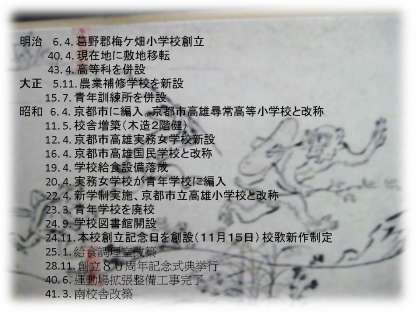 明治　6. 4. 葛野郡梅ケ畑小学校創立
40. 4. 現在地に敷地移転
43. 4. 高等科を併設
大正　5.11. 農業補修学校を新設
15. 7. 青年訓練所を併設
昭和　6. 4. 京都市に編入。京都市高雄尋常高等小学校と改称
11. 5. 校舎増築（木造2階健）
12. 4. 京都市高雄実務女学校新設
16. 4. 京都市高雄国民学校と改称
19. 4. 学校給食設備落成
20. 4. 実務女学校が青年学校に編入
22. 4. 新学制実施、京都市立高雄小学校と改称
23. 3. 青年学校を廃校
24. 9. 学校図書館開設
24.11. 本校創立記念日を創設（１１月１５日）校歌新作制定
25. 1. 給食調理室改築
28.11. 創立８０周年記念式典挙行
40. 6. 運動場拡張整備工事完了
41. 3. 南校舎改築